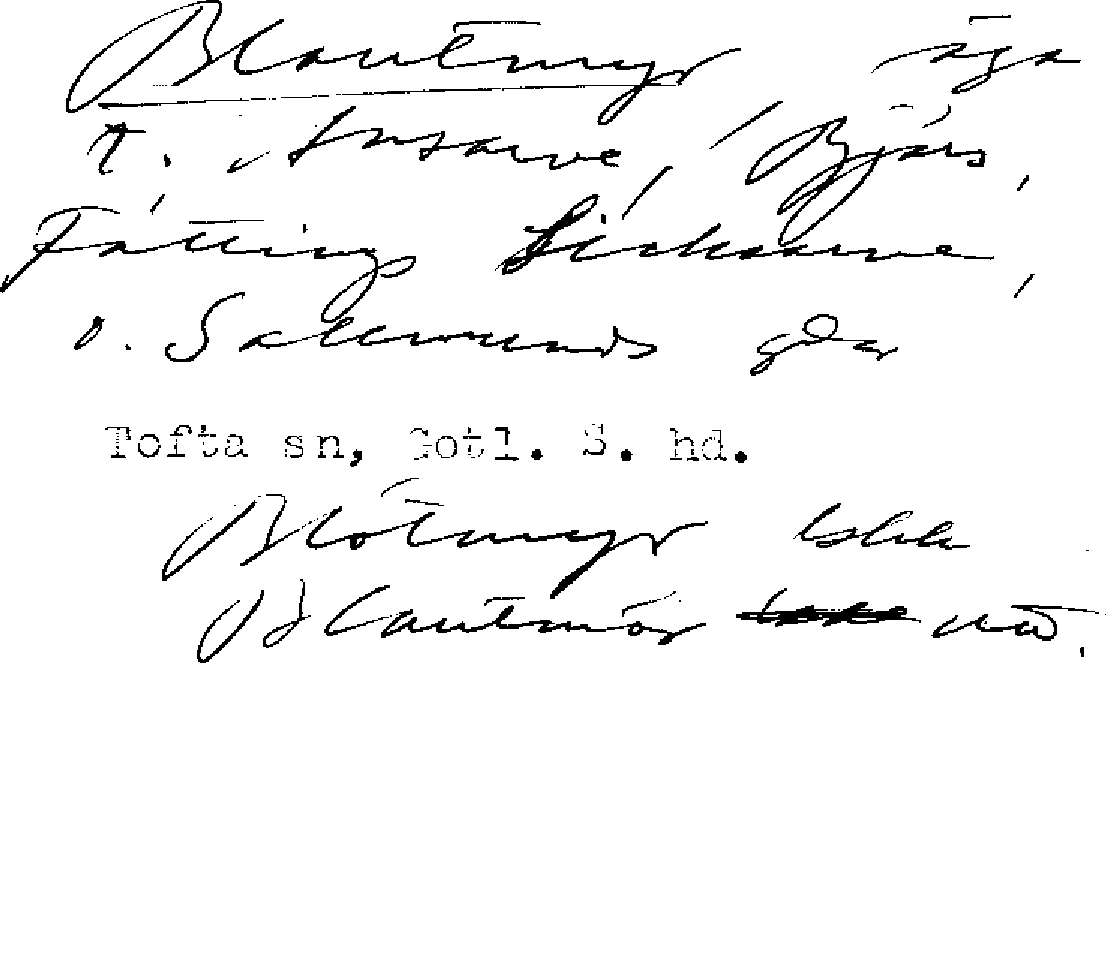 Blautmyr äga
t. Ansarve, Bjärs,
Fättings Sirksarve,
o. Sallmunds gdar
Tofta sn, Gotl. S. hd.
Blötmyr
Blautmör uttl.